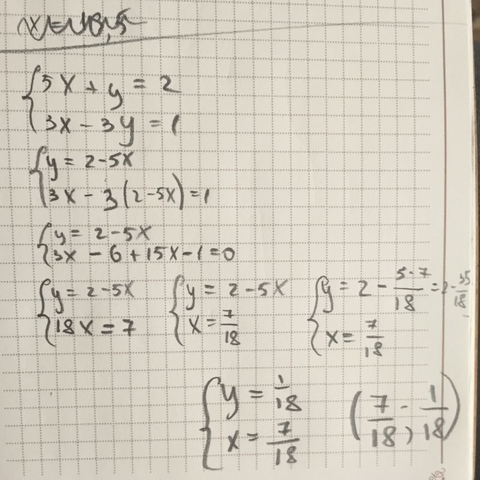 5x + y = 2
3x - 3y = 1
y = 2-5x
3x - 3(2-5x)=1
y = 2-5x
3x - 6+15x-1=0
y = 2-5x
18x = 7
y = 2-5x
x = 7/18
y = 2 - 5·7/18 = 2 - 35/18
x = 7/18
y = 1/18
x = 7/18
(7/18; 1/18)